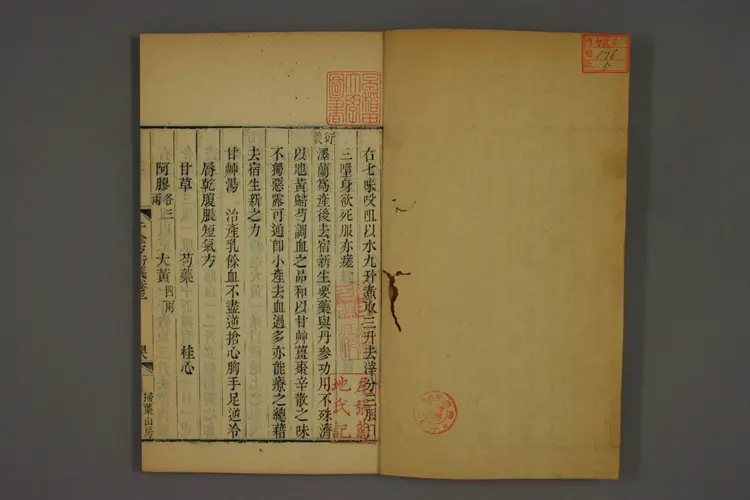 右七味㕮咀以水九升煮取三升去滓分三服日
三墮身欲死服亦瘥
衍義
澤蘭爲產後去宿新生要藥與丹參功用不殊濟
以地黃歸芍調血之品和以甘艸薑棗辛散之味
不獨惡露可通卽小產去血過多亦能療之總藉
去宿生新之力
甘艸湯 治產乳餘血不盡逆搶心胸手足逆冷
唇乾腹脹短氣方
甘草 芍藥 桂心
阿膠各三兩 大黃四兩
千金方衍義卷三
掃葉山房
176